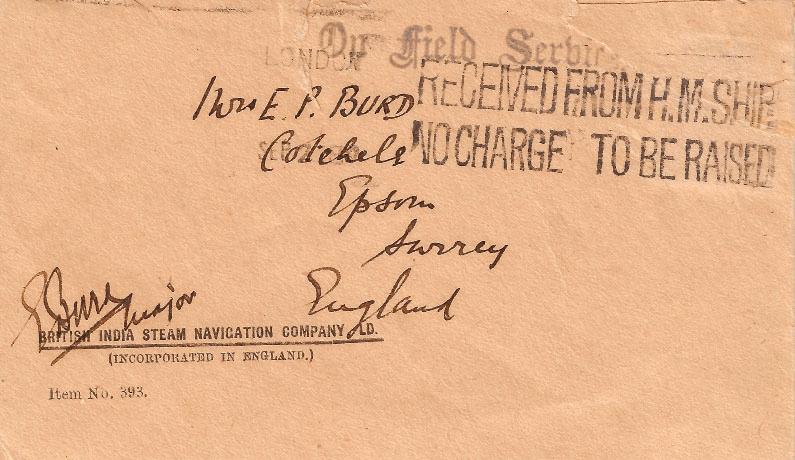 On Field Service
LONDON
RECEIVED FROM H.M. SHIP
NO CHARGE TO BE RAISED
Mrs E. P. BURD
Cotehele
Epsom
Surrey
England
E Burd Major
BRITISH INDIA STEAM NAVIGATION COMPANY LD.
(INCORPORATED IN ENGLAND.)
Item No. 393.